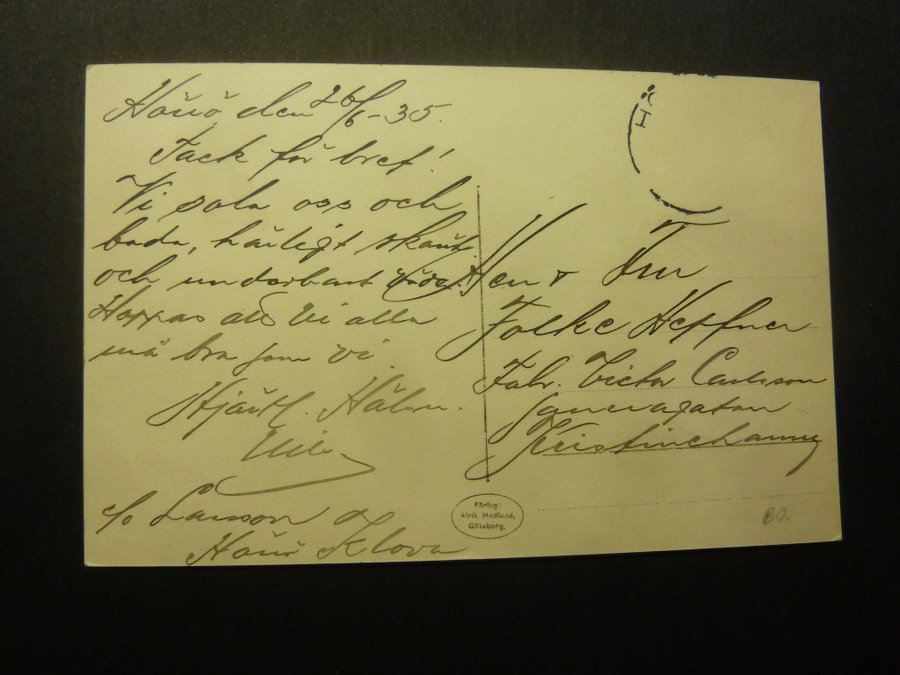 Hönö den 26/6-35.
Tack för bref!
Vi sola oss och
bada, härligt skönt
och underbart väder.
Hoppas att Ni alla
må bra som vi
Hjärtl. Hälsn.
c/o Larsson
Hönö Klova
HÖ
Herr o Fru
Folke Heffner
Fabr. Victor Carlsson
Kristinehamn
Förlag:
Alrik Hedlund,
Göteborg.
60.